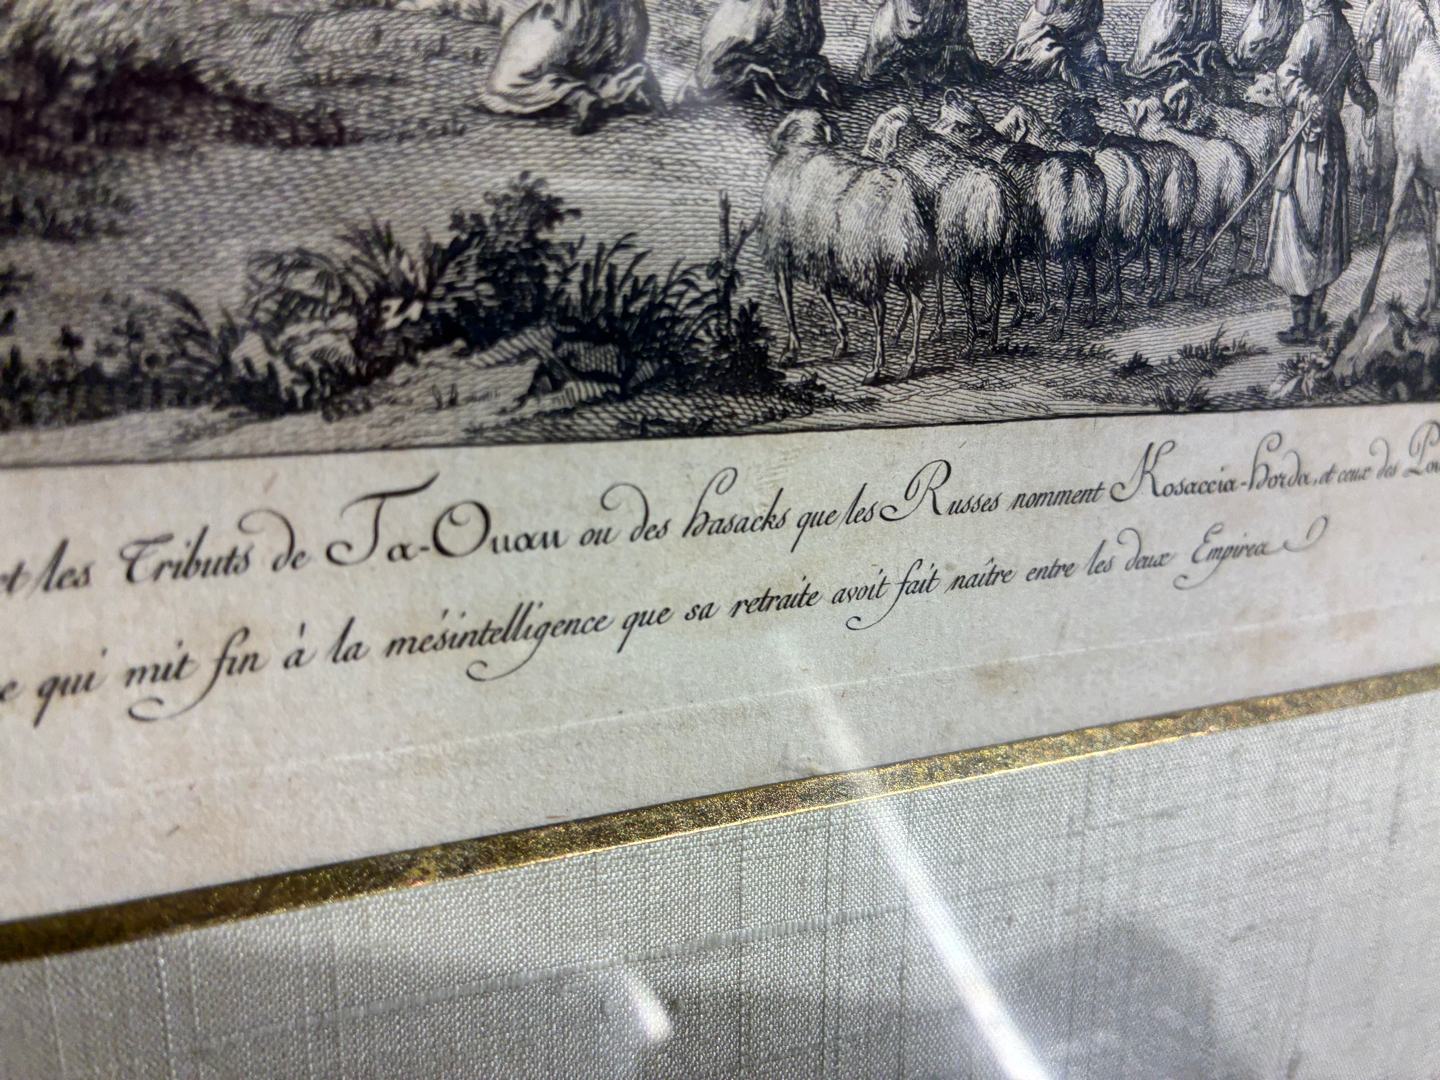 et les Tributs de Ta-Ouan ou des hasacks que les Russes nomment Kosaccia-horda, et ceux des
qui mit fin à la mésintelligence que sa retraite avoit fait naître entre les deux Empires